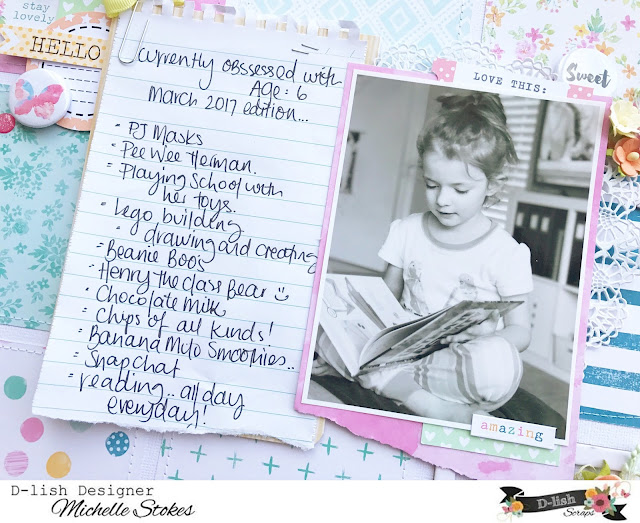 stay
lovely
HELLO
currently obssessed with
Age: 6
March 2017 edition...
- PJ Masks
- Pee Wee Herman.
- Playing School with
her toys.
- Lego building
- drawing and creating
- Beanie Boos
- Henry the class Bear
- Chocolate milk
- Chips of all kinds!
- Banana Milo Smoothies..
- Snapchat
- reading.. all day
everyday!
LOVE THIS:
Sweet
amazing
D-lish Designer
Michelle Stokes
D-lish
Scraps